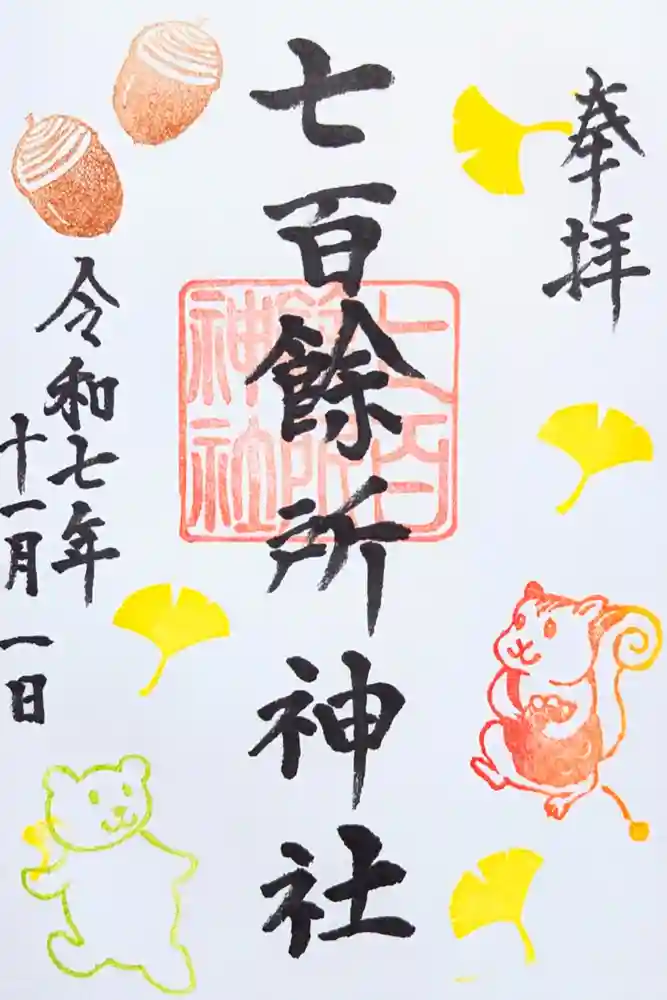 奉拝
七百餘所神社
七百餘所神社
令和七年
十一月一日